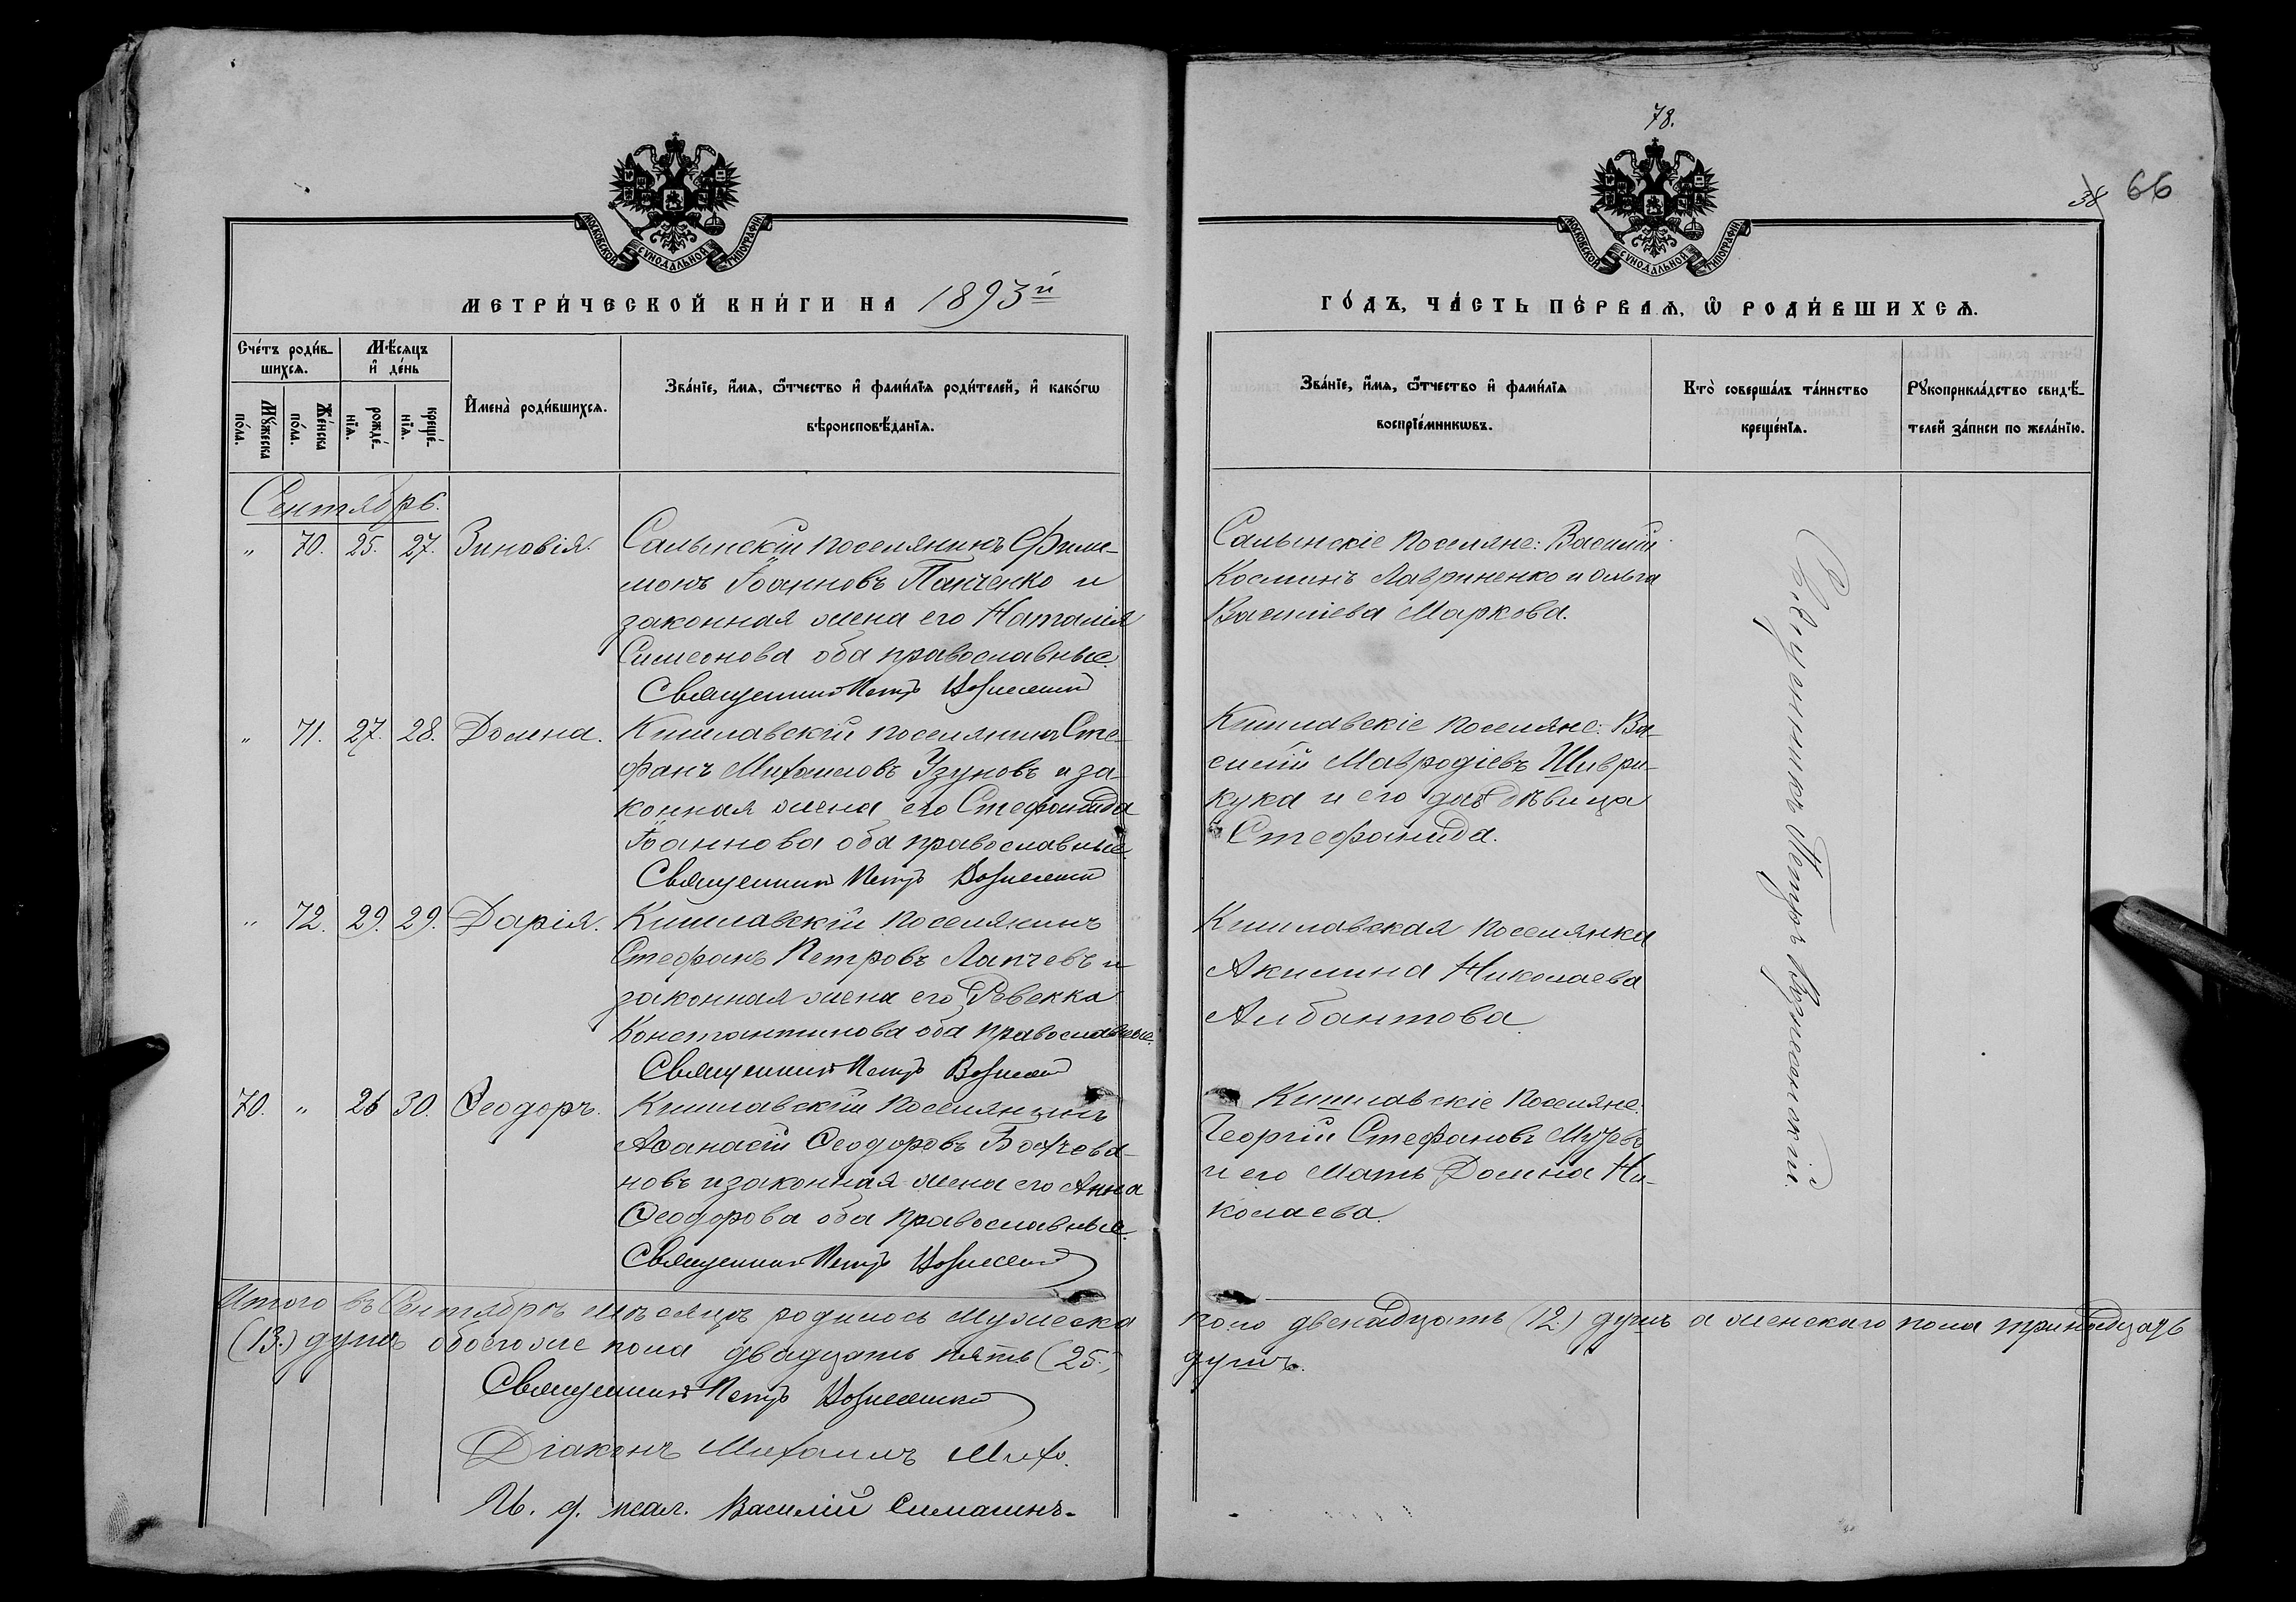 78.
38 66
МОСКОВСКОЙ СУНОДАЛЬНОЙ ТИПОГРАФІИ
МОСКОВСКОЙ СУНОДАЛЬНОЙ ТИПОГРАФІИ
МЕТРИ́ЧЕСКОЙ КНИ́ГИ НА 1893й
ГО́ДЪ, ЧА́СТЬ ПЕ́РВАѦ, Ѿ РОДИ́ВШИХСѦ.
Сче́тъ роди́в-
шихсѧ.
Мѣ́сяцъ
и҆ де́нь
И҆мена̀ роди́вшихсѧ.
Зва́нїе, и҆́мѧ, ѻ҆́тчество и҆ фами́лїѧ роди́телей, и҆ како́гѡ
вѣроисповѣ́данїѧ.
Мꙋ́жеска
по́ла.
Же́нска
по́ла.
рожде́-
нїѧ.
креще́-
нїѧ.
Зва́нїе, и҆́мѧ, ѻ҆́тчество и҆ фами́лїѧ
воспрїе́мникѡвъ.
Кто̀ соверша́лъ та́инство
креще́нїѧ.
Рꙋкоприкла́дство свидѣ́-
телей за́писи по жела́нїю.
Сентябрь.
" 70. 25. 27. Зиновія. Салынскій поселянинъ Фили-
монъ Іоанновъ Панченко и
законная жена его Наталія
Симеонова оба православные.
Священникъ Петръ Вознесенскій
Салынскіе поселяне: Василій
Косминъ Лавриненко и Ольга
Васильева Маркова.
" 71. 27. 28. Домна. Кишлавскій поселянинъ Сте-
фанъ Михаиловъ Узуновъ и за-
конная жена его Стефанида
Іоаннова оба православные.
Священникъ Петръ Вознесенскій
Кишлавскіе поселяне: Ва-
силій Мавродіевъ Шиври-
кука и его дѣвица
Стефанида.
" 72. 29. 29. Дарія. Кишлавскій поселянинъ
Стефанъ Петровъ Лапчевъ и
законная жена его Ревекка
Константинова оба православные.
Священникъ Петръ Вознесенскій
Кишлавская поселянка
Акилина Николаева
Албантова.
70. " 26 30. Ѳеодоръ. Кишлавскій поселянинъ
Аѳанасій Ѳеодоровъ Бохчева-
новъ и законная жена его Анна
Ѳеодорова оба православные.
Священникъ Петръ Вознесенскій
Кишлавскіе поселяне:
Георгій Стефановъ
и его мать Домна Ни-
колаева.
Священникъ Петръ Вознесенскій.
Итого въ Сентябрѣ мѣсяцѣ родилось мужеска
поло двенадцать (12.) душъ а женскаго пола тринадцать
(13.) душъ обоегоже пола двадцать пять (25.)
душъ.
Священникъ Петръ Вознесенскій
Діаконъ Михаилъ Михо.
И. д. псал. Василій Симашинъ.